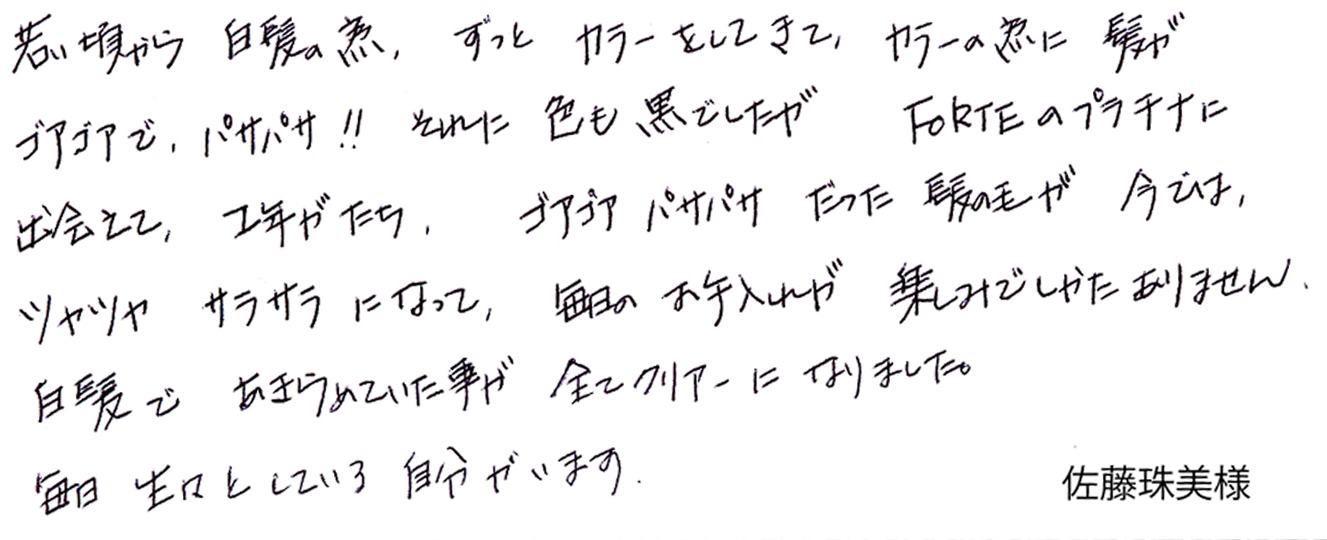 若い頃から 白髪の為、ずっと カラーをしてきて、カラーの為に 髪が
ゴアゴアで、パサパサ!! それに 色も 黒でしたが FORTEのプラチナに
出会えて、1年がたち、 ゴアゴア パサパサ だった 髪の毛が 今では、
ツヤツヤ サラサラ になって、毎日の お手入れが 楽しみでしかたありません.
白髪で あきらめていた事が 全てクリアーに なりました。
毎日 生々としている 自分がいます.
佐藤珠美様